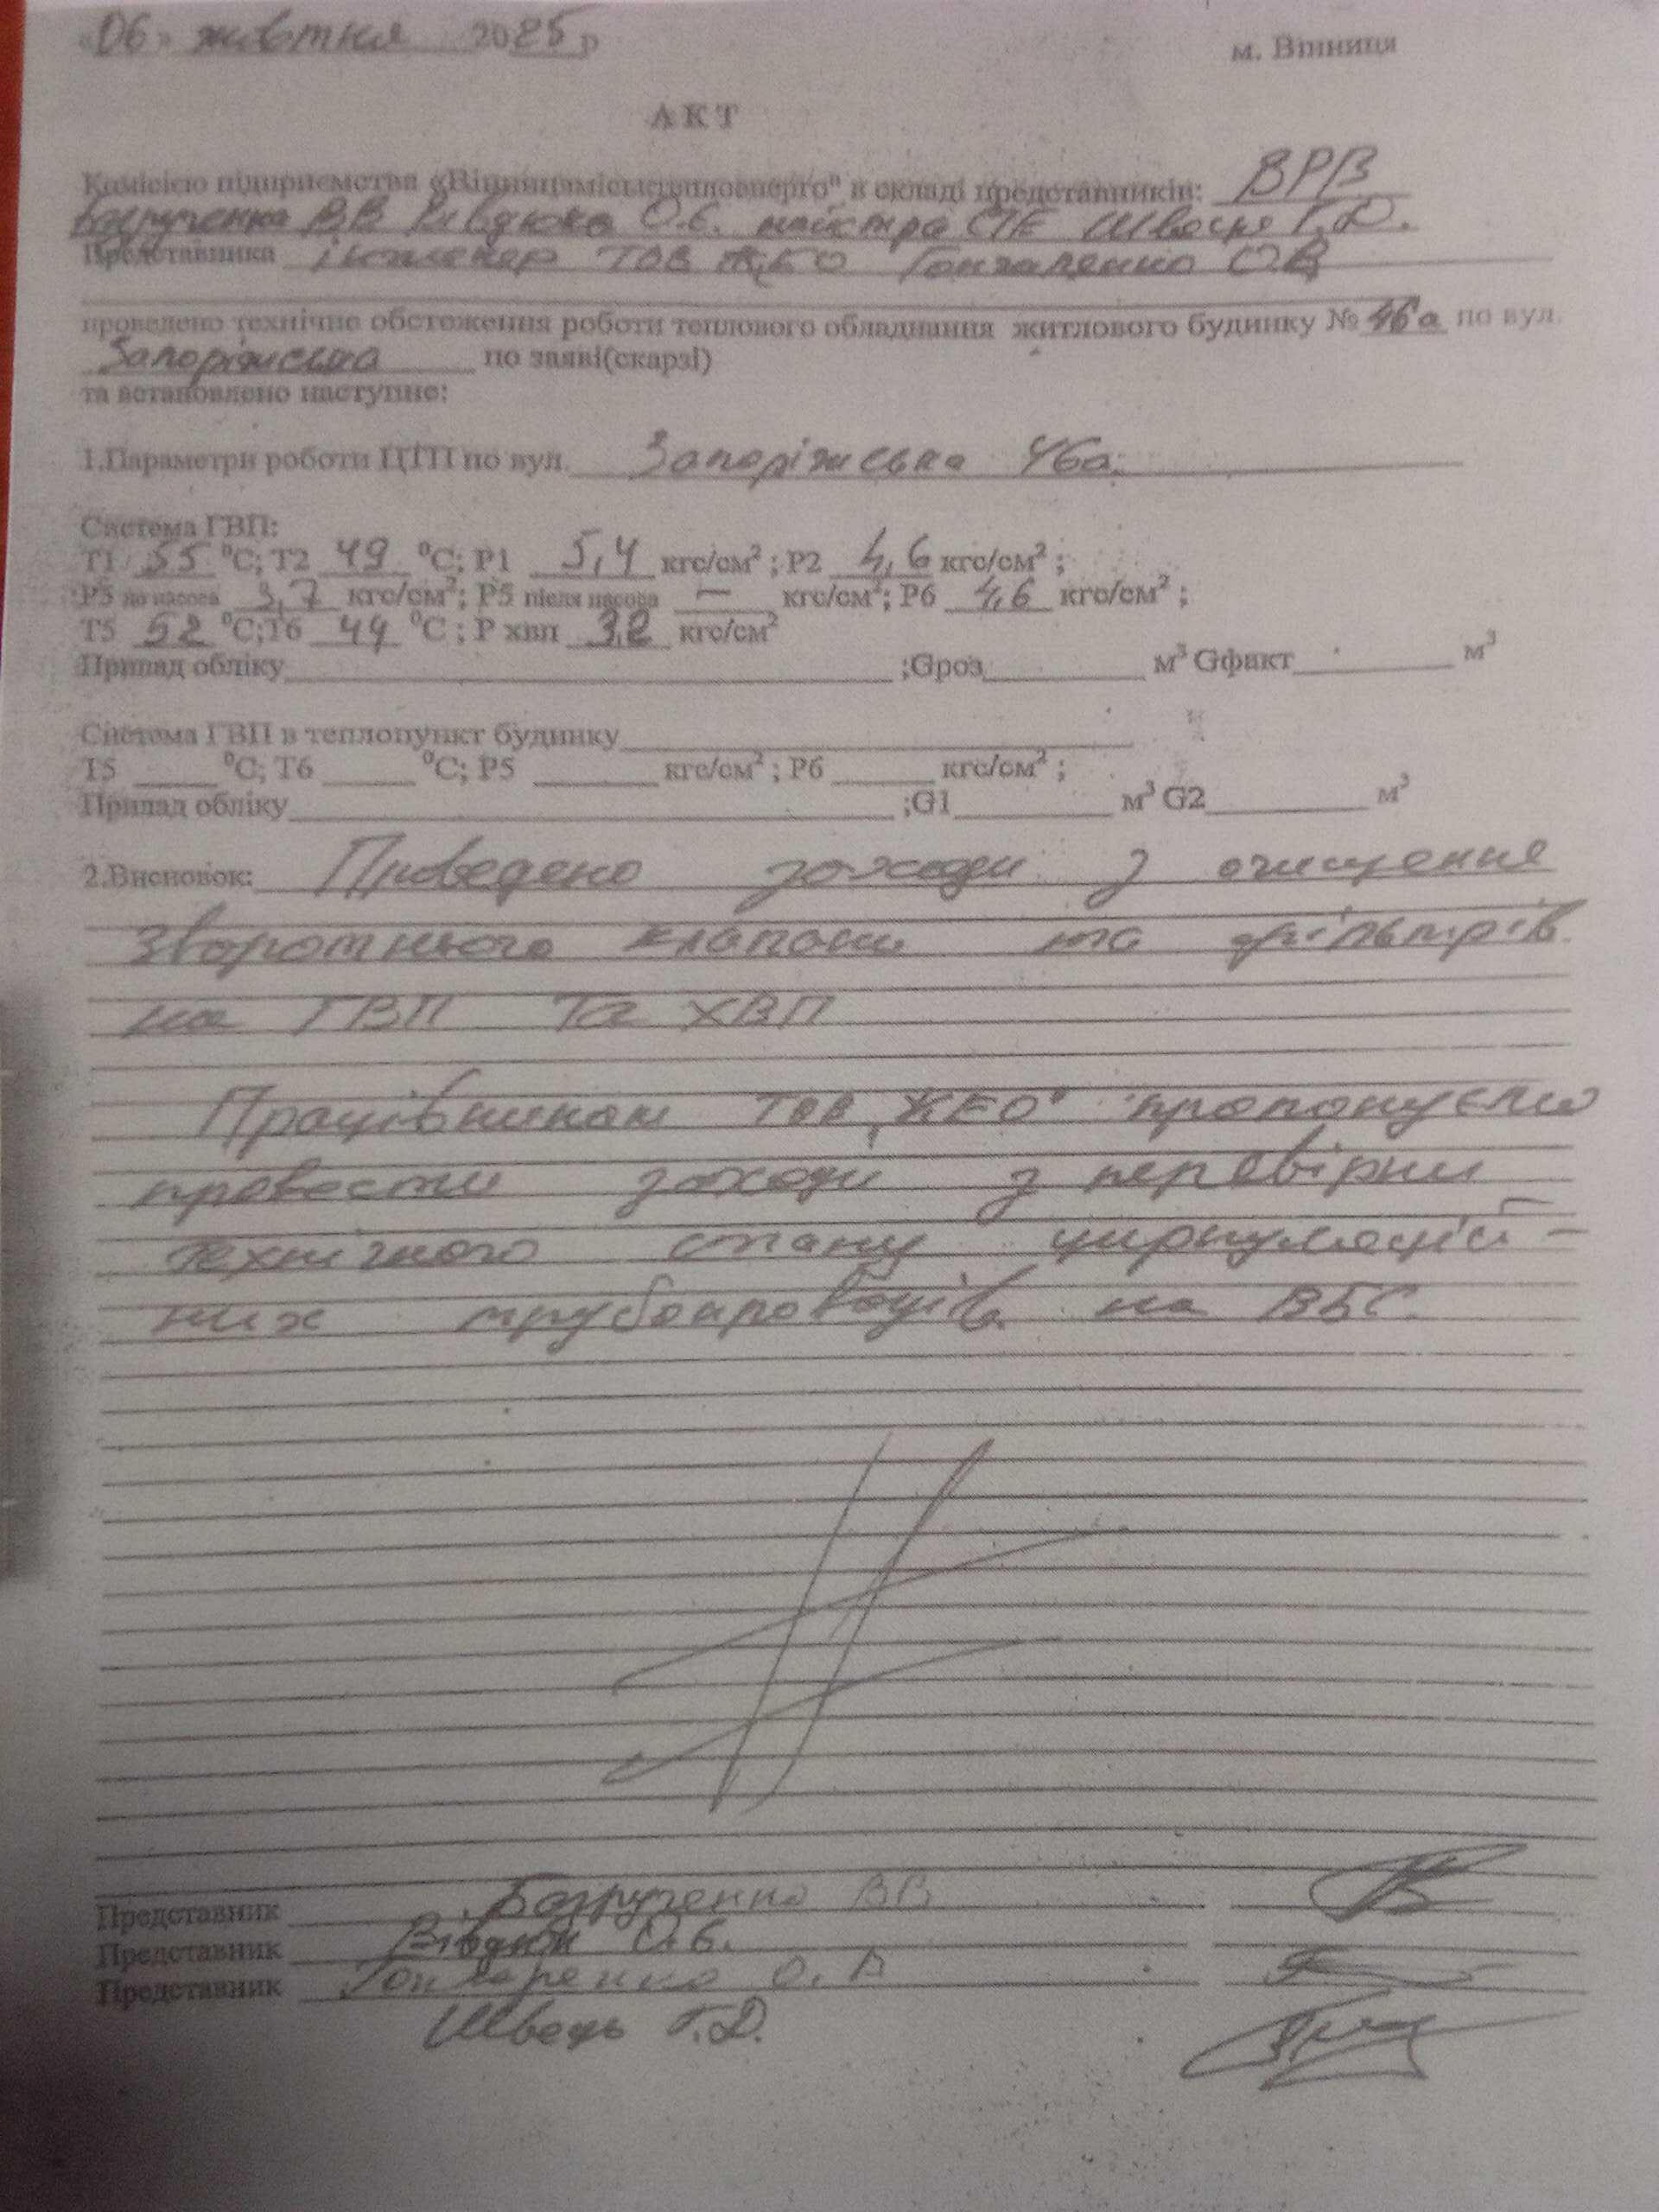 «06» жовтня 2025 р м. Вінниця
АКТ
Комісією підприємства «Вінницяміськтеплоенерго" в складі представників: ВРВ
Безрученка ВВ Вівдюка О.Є. майстра СТЕ Шведь Г.Д.
Представника інженер ТОВ ЖЕО Гончаренко О В
проведено технічне обстеження роботи теплового обладнання житлового будинку № 46а по вул.
Запорізька по заяві(скарзі)
та встановлено наступне:
1.Параметри роботи ЦТП по вул. Запоріжська 46а.
Система ГВП:
Т1 55 ⁰С; Т2 49 ⁰С; Р1 5,4 кгс/см² ; Р2 4,6 кгс/см² ;
Р5 до насоса 3,7 кгс/см²; Р5 після насоса — кгс/см²; Р6 4,6 кгс/см² ;
Т5 52 ⁰С;Т6 44 ⁰С ; Р хвп 3,2 кгс/см²
Прилад обліку ;Gроз м³ Gфакт м³
Система ГВП в теплопункт будинку
Т5 ⁰С; Т6 ⁰С; Р5 кгс/см² ; Р6 кгс/см² ;
Прилад обліку ;G1 м³ G2 м³
2.Висновок: Проведено заходи з очищення
зворотнього клапану та фільтрів
на ГВП та ХВП
Працівникам ТОВ „ЖЕО" пропонуємо
провести заходи з перевірки
технічного стану циркуляцій-
них трубопроводів на ВБС.
Представник Безрученко ВВ
Представник Вівдюк О.Є.
Представник Гончаренко О. В
Шведь Г.Д.